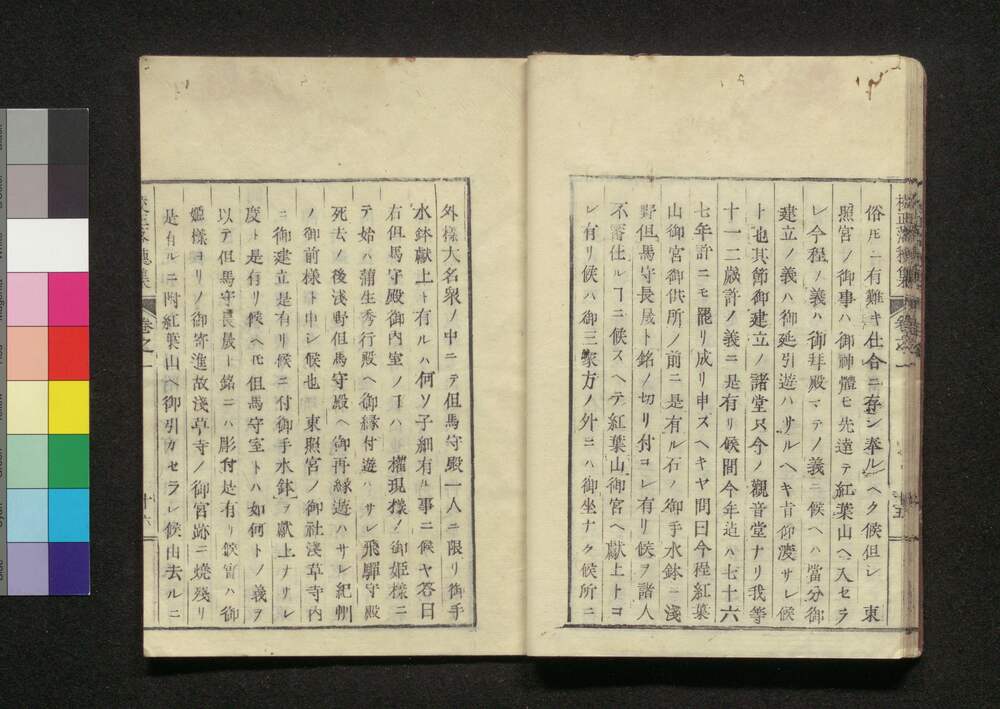 俗ㇳモニ有難キ仕合ニ存シ奉ルヘク候但シ　東
照宮ノ御事ハ御神體モ先達テ紅葉山ヘ入セラ
レ今程ノ義ハ御拜殿マテノ義ニ候ヘハ當分御
建立ノ義ハ御延引遊ハサルヘキ旨仰渡サレ候
ト也其節御建立ノ諸堂只今ノ觀音堂ナリ我等
十一二歳許ノ義ニ是有リ候間今年迠ハ七十六
七年許ニモ罷リ成リ申スヘキヤ問曰今程紅葉
山御宮御供所ノ前ニ是有ル石ノ御手水鉢ニ淺
野但馬守長晟ト銘ノ切リ付コレ有リ候ヲ諸人
不審仕ルヿニ候スヘテ紅葉山御宮ヘ獻上トコ
レ有リ候ハ御三家方ノ外ニハ御坐ナク候所ニ
校正落穗集
卷之一
十五
外樣大名衆ノ中ニテ但馬守殿一人ニ限リ御手
水鉢獻上ト有ルハ何ソ子細有ル事ニ候ヤ答曰
右但馬守殿御内室ノヿハ　權現樣ノ御姬樣ニ
テ始ハ蒲生秀行殿ヘ御縁付遊ハサレ飛驒守殿
死去ノ後淺野但馬守殿ヘ御再縁遊ハサレ紀州
ノ御前樣ト申シ候也　東照宮ノ御社淺草寺内
ニ御建立是有リ候ニ付御手水鉢ヲ獻上ナサレ
度ト是有リ候ヘㇳモ但馬守室トハ如何トノ義ヲ
以テ但馬守長晟ト銘ニハ彫付是有リ候實ハ御
姬樣ヨリノ御寄進故淺草寺ノ御宮跡ニ燒殘リ
是有ルニ付紅葉山ヘ御引カセラレ候由去ルニ
卷之一
十六